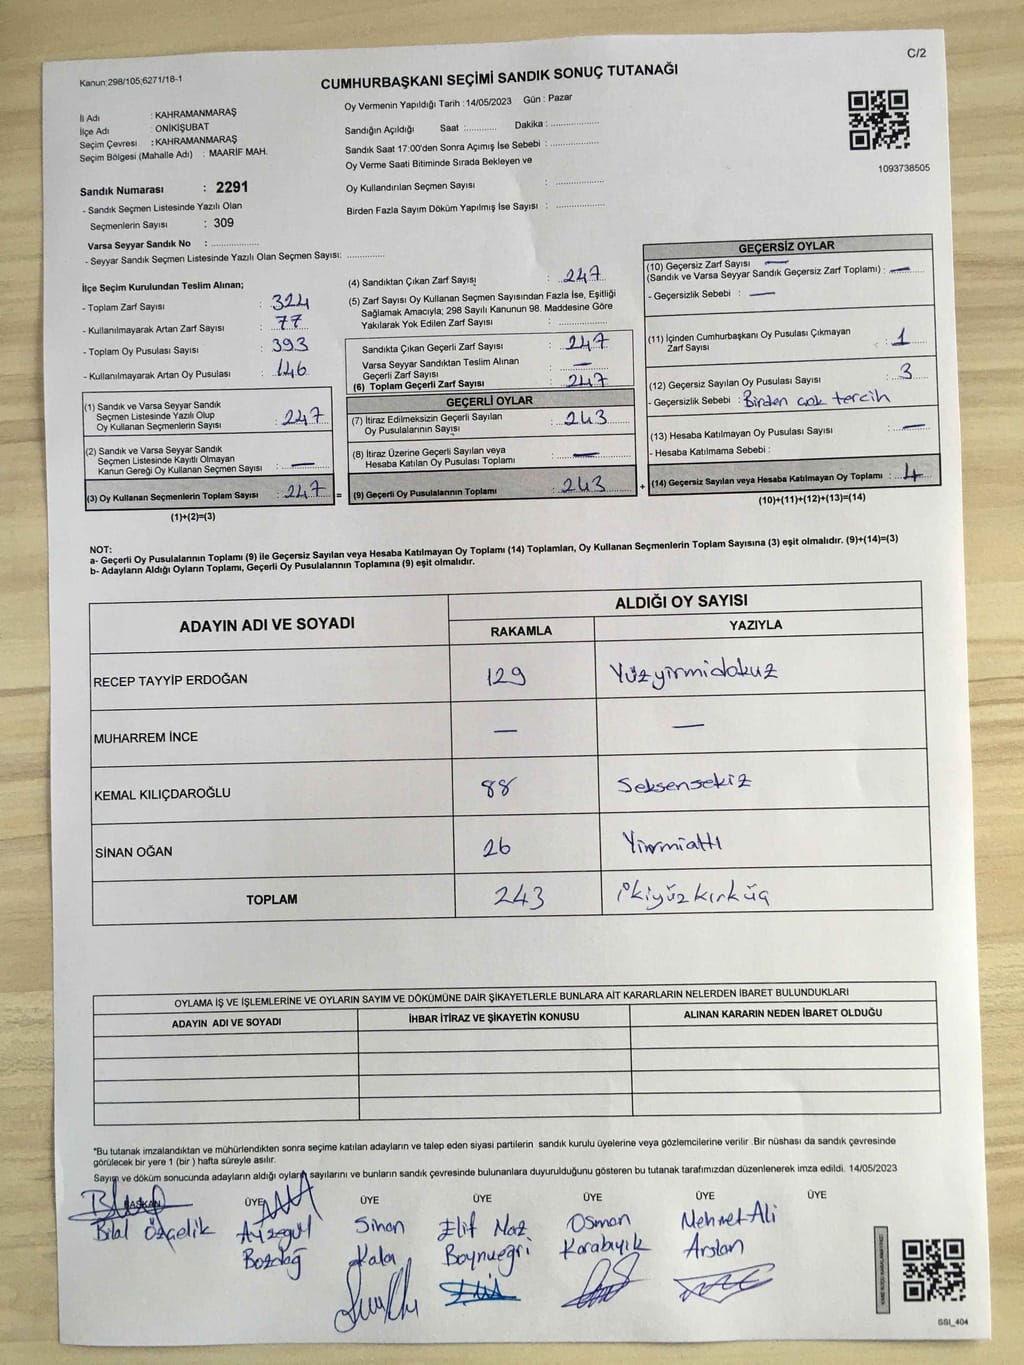 C/2
Kanun:298/105;6271/18-1
CUMHURBAŞKANI SEÇİMİ SANDIK SONUÇ TUTANAĞI
İl Adı : KAHRAMANMARAŞ
İlçe Adı : ONİKİŞUBAT
Seçim Çevresi : KAHRAMANMARAŞ
Seçim Bölgesi (Mahalle Adı) : MAARİF MAH.
Sandık Numarası : 2291
- Sandık Seçmen Listesinde Yazılı Olan
Seçmenlerin Sayısı : 309
Varsa Seyyar Sandık No :
- Seyyar Sandık Seçmen Listesinde Yazılı Olan Seçmen Sayısı:
Oy Vermenin Yapıldığı Tarih :14/05/2023 Gün : Pazar
Sandığın Açıldığı Saat : Dakika :
Sandık Saat 17:00'den Sonra Açımış İse Sebebi :
Oy Verme Saati Bitiminde Sırada Bekleyen ve
Oy Kullandırılan Seçmen Sayısı :
Birden Fazla Sayım Döküm Yapılmış İse Sayısı :
1093738505
İlçe Seçim Kurulundan Teslim Alınan;
- Toplam Zarf Sayısı : 324
- Kullanılmayarak Artan Zarf Sayısı : 77
- Toplam Oy Pusulası Sayısı : 393
- Kullanılmayarak Artan Oy Pusulası : 146
(1) Sandık ve Varsa Seyyar Sandık
Seçmen Listesinde Yazılı Olup
Oy Kullanan Seçmenlerin Sayısı : 247
(2) Sandık ve Varsa Seyyar Sandık
Seçmen Listesinde Kayıtlı Olmayan
Kanun Gereği Oy Kullanan Seçmen Sayısı : —
(3) Oy Kullanan Seçmenlerin Toplam Sayısı : 247 =
(1)+(2)=(3)
(4) Sandıktan Çıkan Zarf Sayısı : 247
(5) Zarf Sayısı Oy Kullanan Seçmen Sayısından Fazla İse, Eşitliği
Sağlamak Amacıyla; 298 Sayılı Kanunun 98. Maddesine Göre
Yakılarak Yok Edilen Zarf Sayısı :
Sandıkta Çıkan Geçerli Zarf Sayısı : 247
Varsa Seyyar Sandıktan Teslim Alınan
Geçerli Zarf Sayısı : —
(6) Toplam Geçerli Zarf Sayısı : 247
GEÇERLİ OYLAR
(7) İtiraz Edilmeksizin Geçerli Sayılan
Oy Pusulalarının Sayısı : 243
(8) İtiraz Üzerine Geçerli Sayılan veya
Hesaba Katılan Oy Pusulası Toplamı : —
(9) Geçerli Oy Pusulalarının Toplamı : 243 +
GEÇERSİZ OYLAR
(10) Geçersiz Zarf Sayısı —
(Sandık ve Varsa Seyyar Sandık Geçersiz Zarf Toplamı) : —
- Geçersizlik Sebebi : —
(11) İçinden Cumhurbaşkanı Oy Pusulası Çıkmayan
Zarf Sayısı : 1
(12) Geçersiz Sayılan Oy Pusulası Sayısı : 3
- Geçersizlik Sebebi : Birden cok tercih
(13) Hesaba Katılmayan Oy Pusulası Sayısı : —
- Hesaba Katılmama Sebebi :
(14) Geçersiz Sayılan veya Hesaba Katılmayan Oy Toplamı : 4
(10)+(11)+(12)+(13)=(14)
NOT:
a- Geçerli Oy Pusulalarının Toplamı (9) ile Geçersiz Sayılan veya Hesaba Katılmayan Oy Toplamı (14) Toplamları, Oy Kullanan Seçmenlerin Toplam Sayısına (3) eşit olmalıdır. (9)+(14)=(3)
b- Adayların Aldığı Oyların Toplamı, Geçerli Oy Pusulalarının Toplamına (9) eşit olmalıdır.
ADAYIN ADI VE SOYADI ALDIĞI OY SAYISI
RAKAMLA YAZIYLA
RECEP TAYYİP ERDOĞAN 129 Yüzyirmidokuz
MUHARREM İNCE — —
KEMAL KILIÇDAROĞLU 88 Seksensekiz
SİNAN OĞAN 26 Yirmialtı
TOPLAM 243 ikiyüzkırküç
OYLAMA İŞ VE İŞLEMLERİNE VE OYLARIN SAYIM VE DÖKÜMÜNE DAİR ŞİKAYETLERLE BUNLARA AİT KARARLARIN NELERDEN İBARET BULUNDUKLARI
ADAYIN ADI VE SOYADI İHBAR İTİRAZ VE ŞİKAYETİN KONUSU ALINAN KARARIN NEDEN İBARET OLDUĞU
*Bu tutanak imzalandıktan ve mühürlendikten sonra seçime katılan adayların ve talep eden siyasi partilerin sandık kurulu üyelerine veya gözlemcilerine verilir .Bir nüshası da sandık çevresinde
görülecek bir yere 1 (bir ) hafta süreyle asılır.
Sayım ve döküm sonucunda adayların aldığı oyların sayılarını ve bunların sandık çevresinde bulunanlara duyurulduğunu gösteren bu tutanak tarafımızdan düzenlenerek imza edildi. 14/05/2023
BAŞKAN ÜYE ÜYE ÜYE ÜYE ÜYE ÜYE
Bilal Özçelik Ayşegül Sinan Elif Naz Osman Mehmet Ali
Bozdağ Kala Boynueğri Karabıyık Arslan
SSI_404